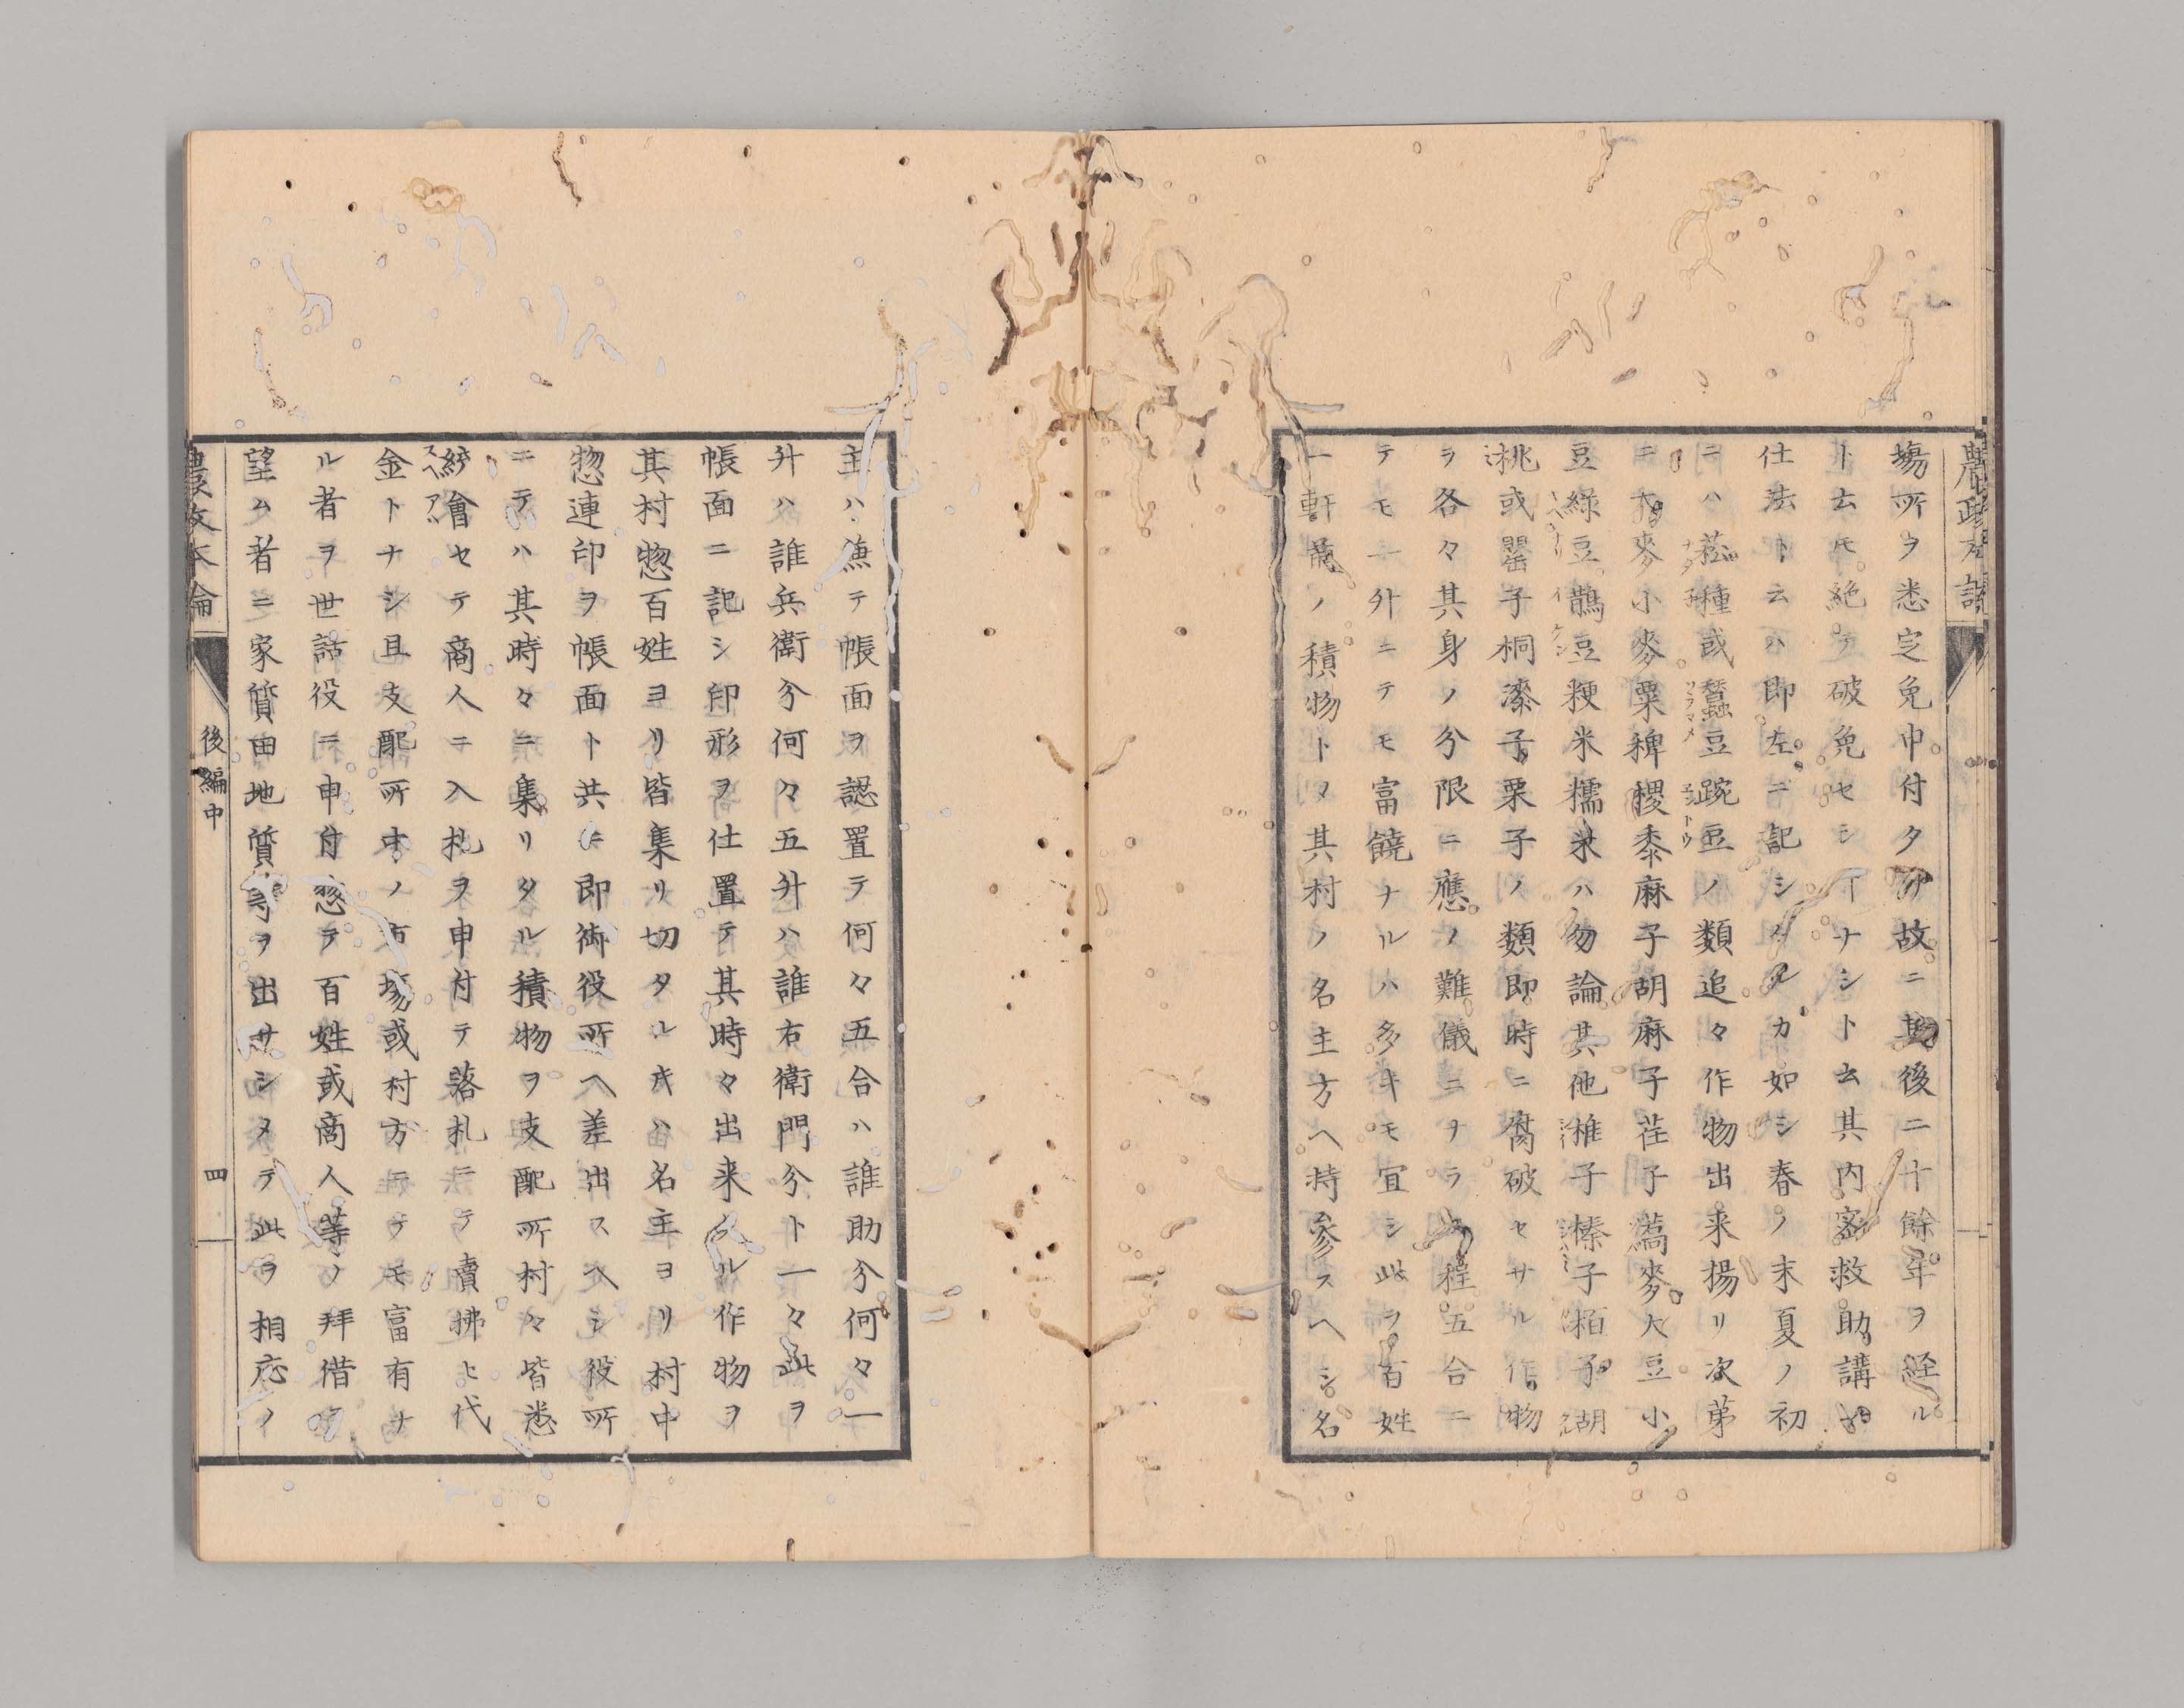 農政本論
場所ヲ悉定免申付タリ故ニ其後二十餘年ヲ経ル
ト云モ絶テ破免セシヿナシト云其内密救助講ノ
仕法ト云ハ即左ニ記シタルカ如シ春ノ末夏ノ初
ニハ菘種或蠶豆豌豆ノ類追々作物出来揚リ次第
ニ大麥小麥粟稗稷黍麻子胡麻子荏子蕎麥大豆小
豆綠豆鵲豆粳米糯米ハ勿論其他椎子榛子栢子胡
桃或罌子桐漆子栗子ノ類即時ニ腐破セサル作物
ヲ各々其身ノ分限ニ應ノ難儀ニナラ程五合ニ
テモ一升ニテモ富饒ナルハ多キモ宜シ此ヲ百姓
一軒前ノ積物トメ其村ノ名主方ヘ持參スヘシ名
主ハ漁テ帳面ヲ認置テ何々五合ハ誰助分何々一
升ハ誰兵衛分何々五升ハ誰右衛門分ト一々此ヲ
帳面ニ記シ印形ヲ仕置テ其時々出来タル作物ヲ
其村惣百姓ヨリ皆集リ切タルキハ名主ヨリ村中
惣連印ヲ帳面ト共ニ即御役所ヘ差出スヘシ役所
ニテハ其時々ニ集リタル積物ヲ支配所村々皆悉
綜會セテ商人ニ入札ヲ申付テ落札ニテ賣拂ヒ代
金トナシ且支配所中ノ市場或村方ニテモ富有ナ
ル者ヲ世話役ニ申付惣テ百姓或商人等ノ拜借ヲ
望ム者ニ家質田地質等ヲ出サシメテ此ヲ相応ノ
農政本論
後編中
四